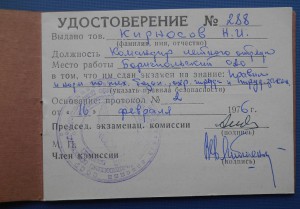 УДОСТОВЕРЕНИЕ № 288
Выдано тов. Кирносов Н.И.
(фамилия, имя, отчество)
Должность Командир летного отряда
Место работы Бориспольский ОАО
в том, что им сдан экзамен на знание: Правил
(указать нужная безопасности)
Основание: протокол № 2
от «16» февраля 1976 г.
Председ. экзаменац. комиссии
(подпись)
М. П.
Член комиссии
(подпись)